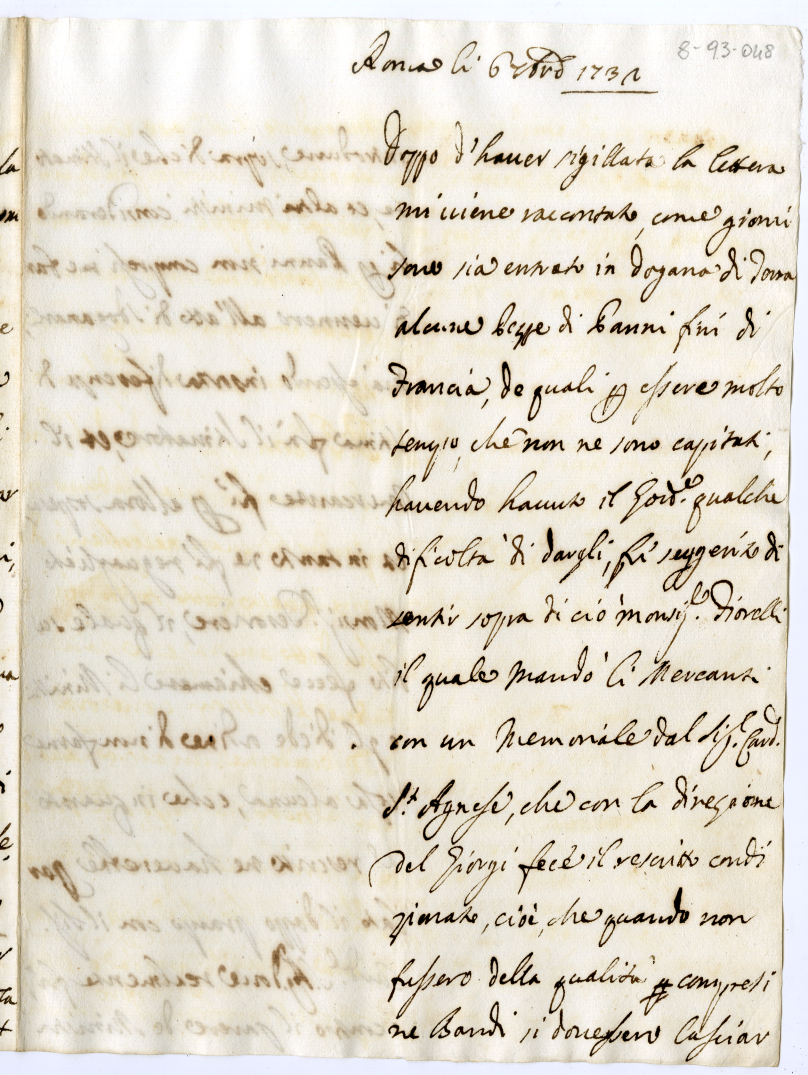 8-93-048
Roma li 6 7bre 1731
Doppo d'haver sigillata la lettera
mi viene raccontato, come giorni
sono sia entrato in Dogana di Terra
alcune pezze di Panni fini di
Francia, de quali p essere molto
tempo, che non ne sono capitati,
havendo havuto il qualche
dificoltà di dargli, fù suggerito di
sentir sopra di ciò Monsig.re Fiorelli
il quale mandò li Mercanti
con un Memoriale dal Sig.r Card.
S.t Agnese, che con la direzione
del Giorgi fece il rescritto condi
zionato, cioè, che quando non
fussero della qualità compresi
ne Bandi si dovessero lasciar